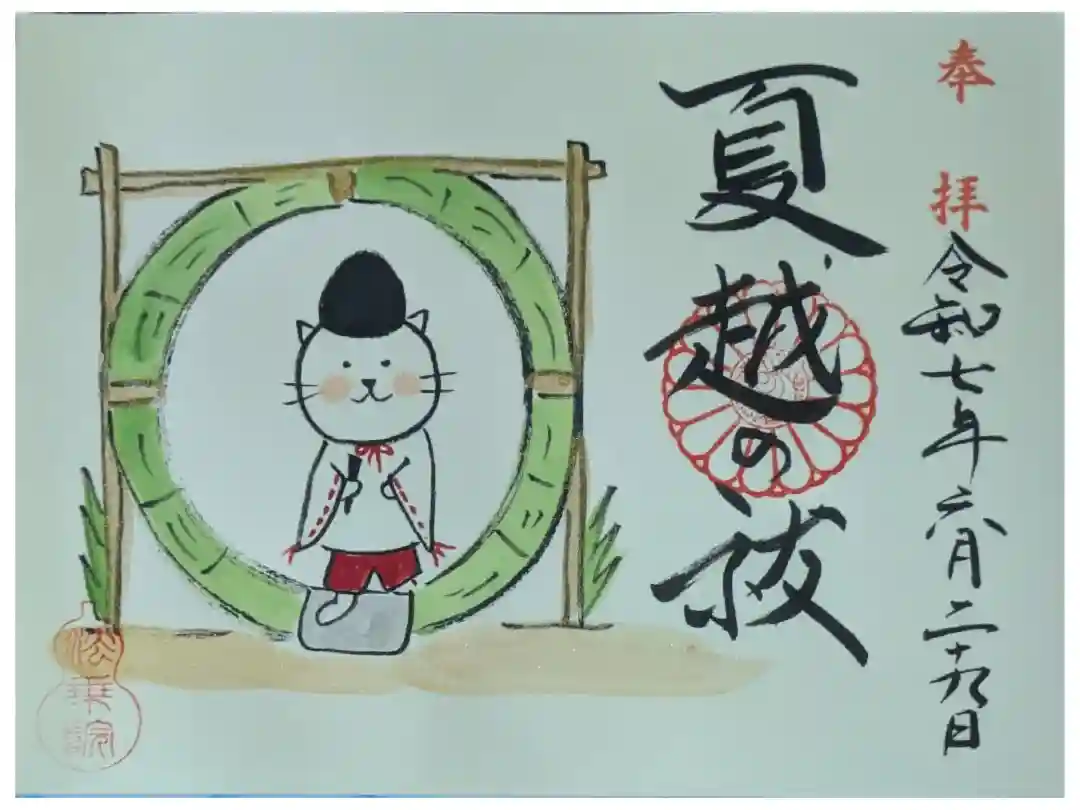 奉拝
令和七年六月二十九日
夏越の祓
法乗院